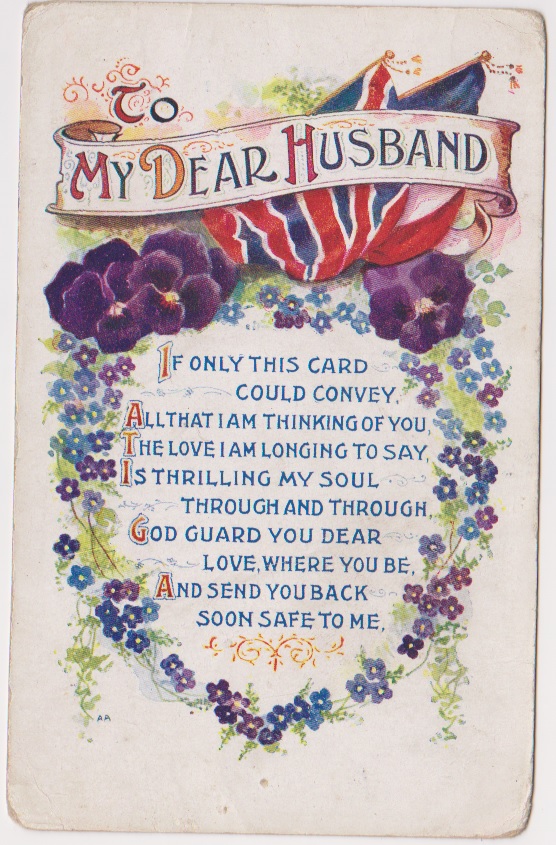 To
My Dear Husband
If only this card
could convey,
All that I am thinking of you,
The love I am longing to say,
Is thrilling my soul
through and through,
God guard you dear
love, where you be,
And send you back
soon safe to me,
AA